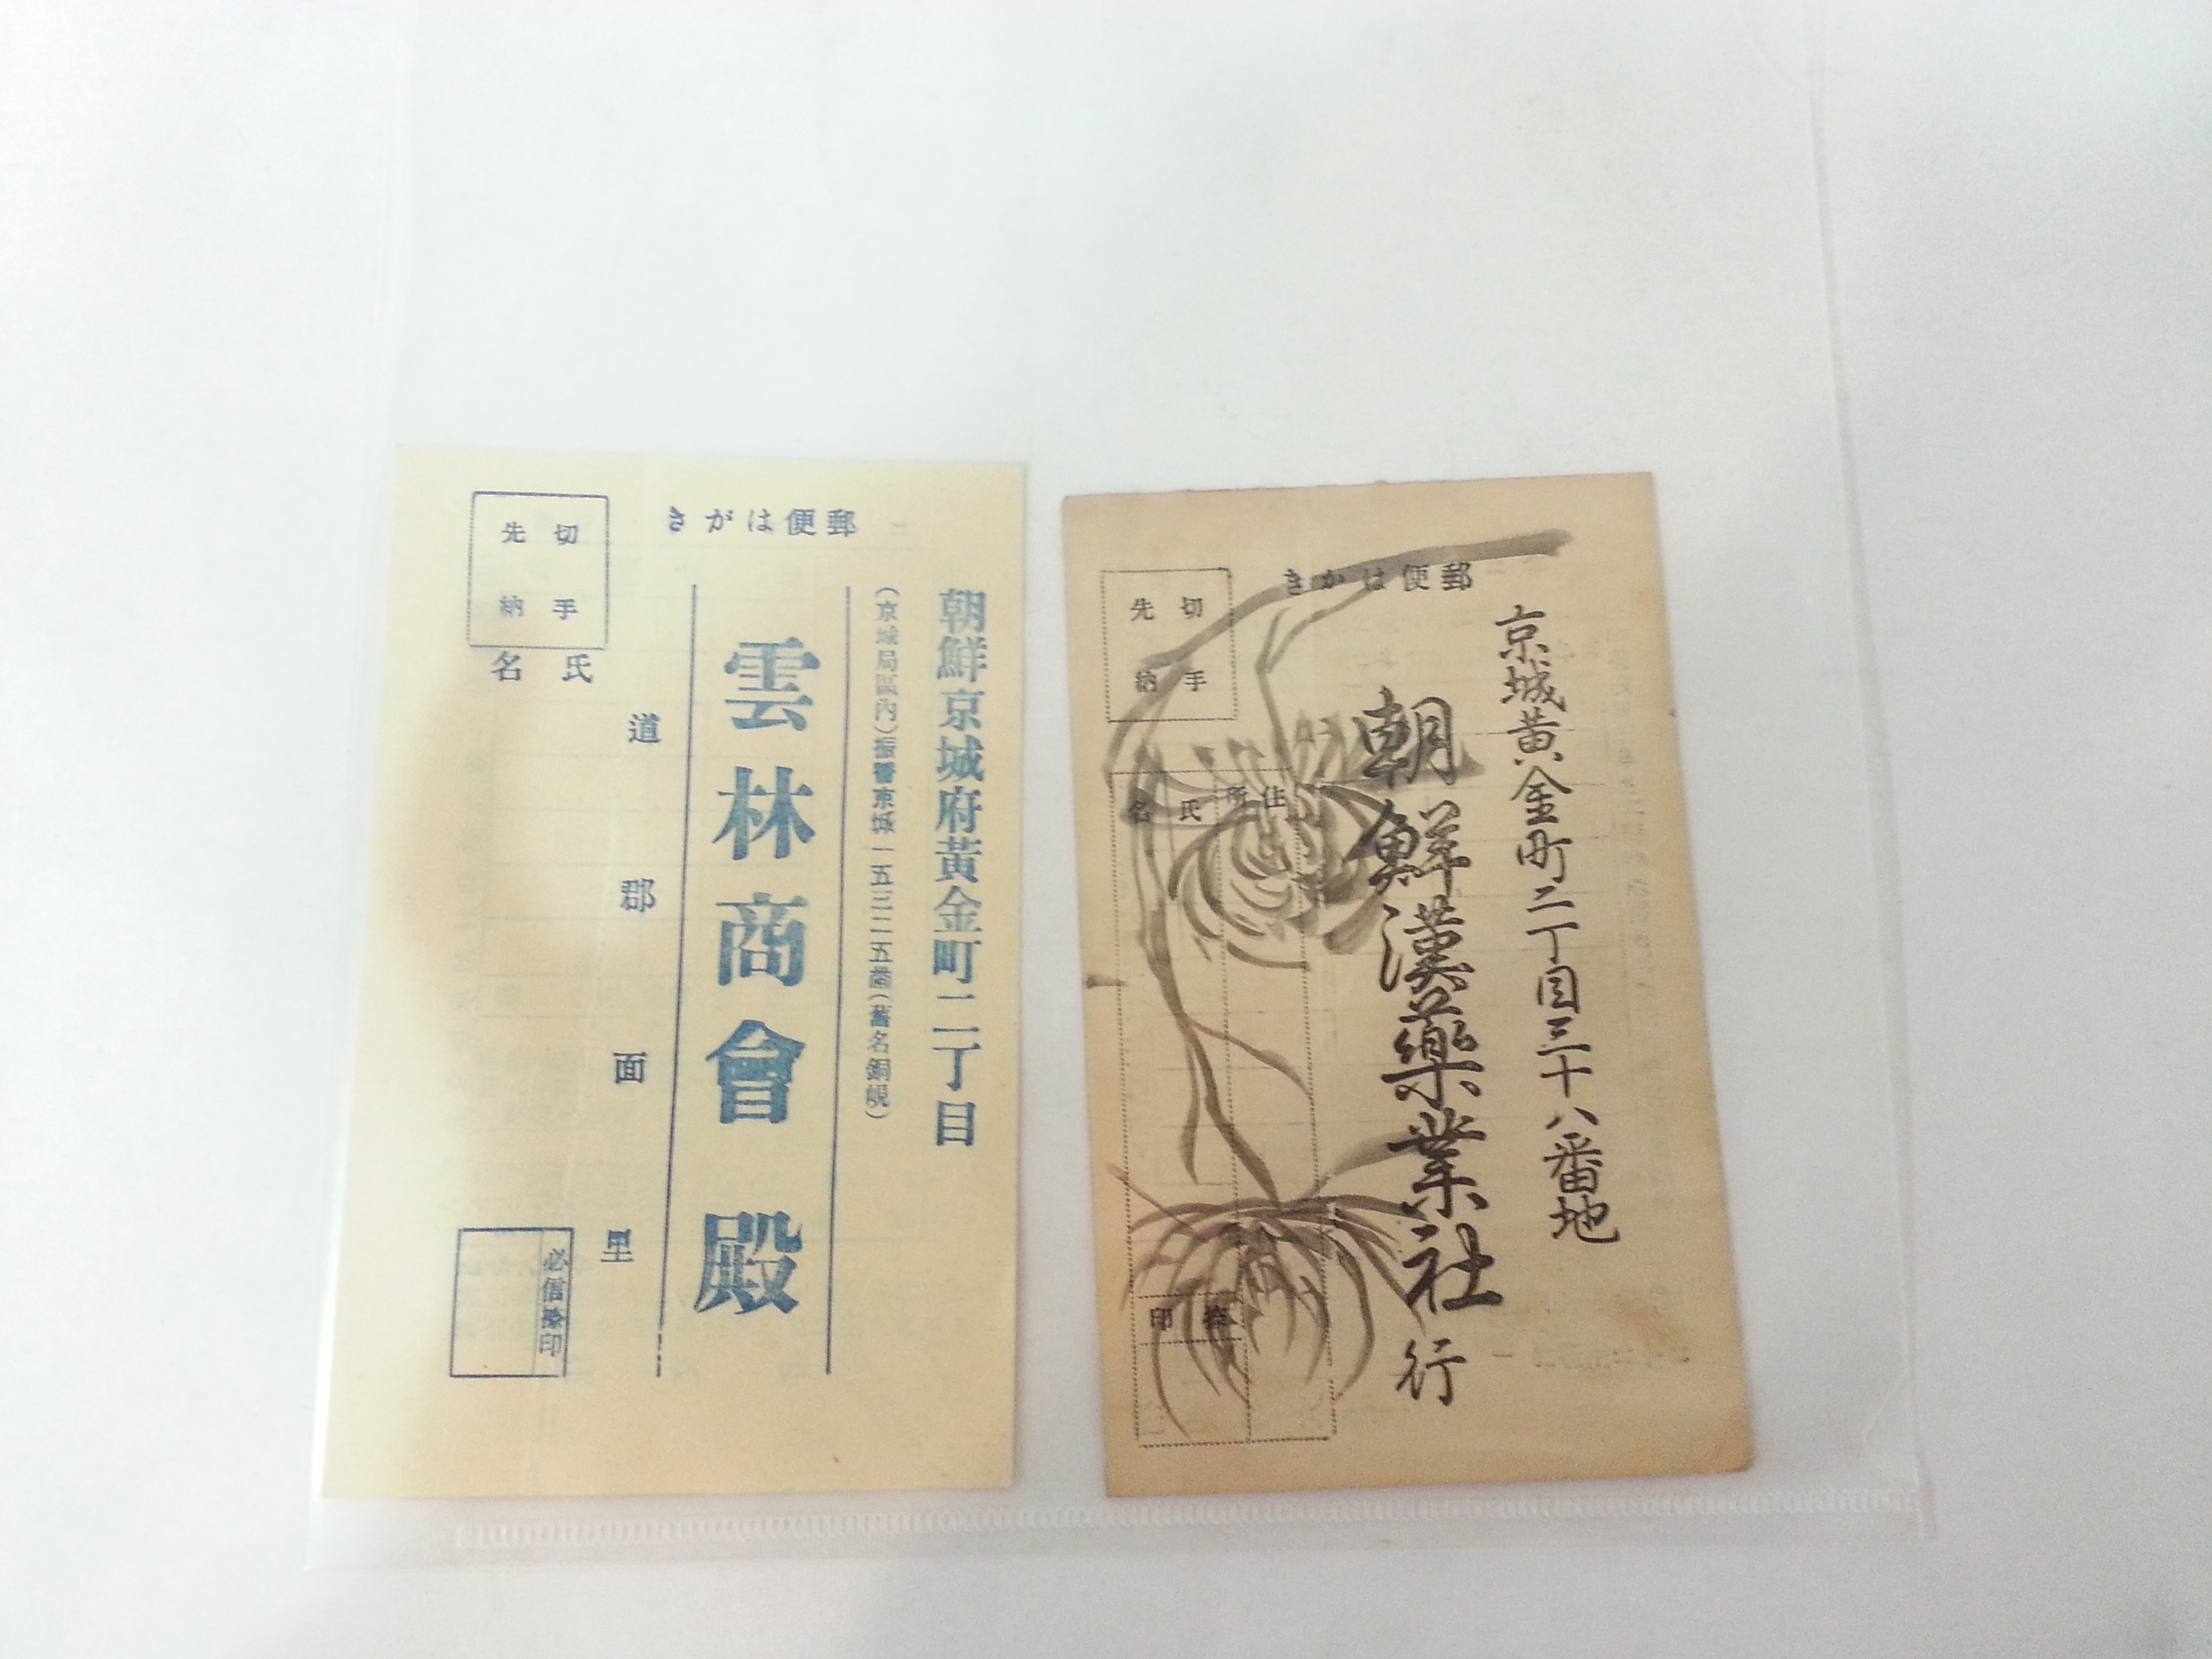 きがは便郵
切手
先納
朝鮮京城府黃金町二丁目
(京城局區內)振替京城一五三二五番(舊名銅峴)
雲林商會 殿
道 郡 面 里
名 氏
必信捺印
きがは便郵
切手
先納
京城黃金町二丁目三十八番地
朝鮮漢藥業社 行
所 住
名 氏
印 捺